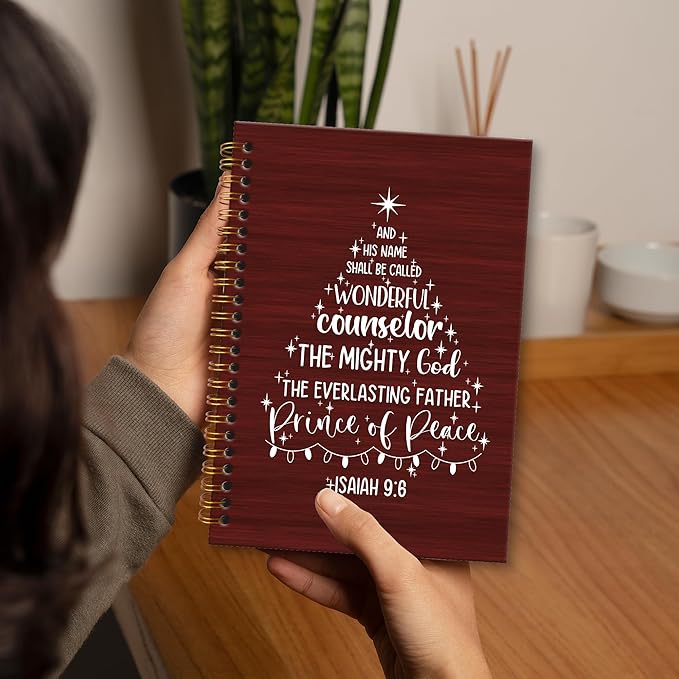 AND
HIS NAME
SHALL BE CALLED
WONDERFUL
counselor
THE MIGHTY God
THE EVERLASTING FATHER
Prince of Peace
ISAIAH 9:6